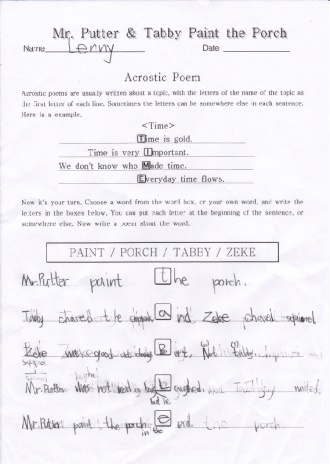 Mr. Putter & Tabby Paint the Porch
Name Lenny Date
Acrostic Poem
Acrostic poems are usually written about a topic, with the letters of the name of the topic as
the first letter of each line. Sometimes the letters can be somewhere else in each sentence.
Here is a example.
<Time>
Time is gold.
Time is very Important.
We don't know who Made time.
Everyday time flows.
Now it's your turn. Choose a word from the word box, or your own word, and write the
letters in the boxes below. You can put each letter at the beginning of the sentence, or
somewhere else. Now write a poem about the word.
PAINT / PORCH / TABBY / ZEKE
Mr.Putter paint the porch.
Tabby chased the and Zeke chased
Zeke good at B Not tabby.
Mr. Putter was not
but he
Mr.Putter paint the porch end. the porch
in the